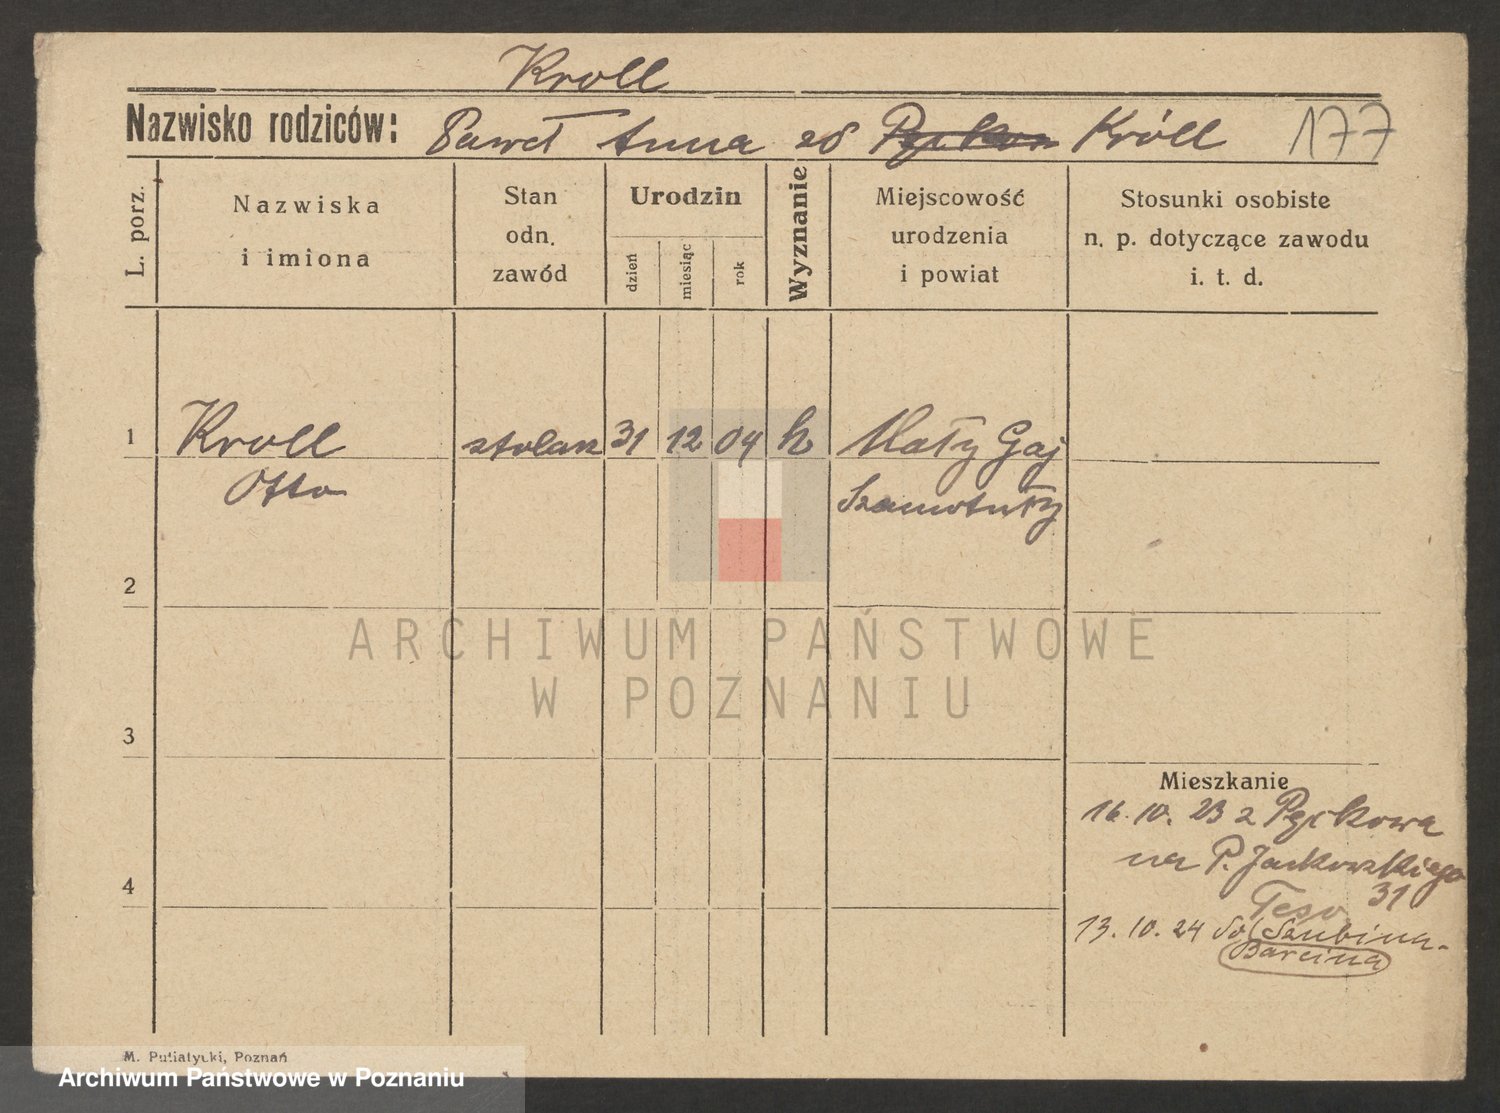 Kroll
Nazwisko rodziców: Paweł Anna zd Królł 177
L. porz.
Nazwiska
i imiona
Stan
odn.
zawód
Urodzin
dzień
miesiąc
rok
Wyznanie
Miejscowość
urodzenia
i powiat
Stosunki osobiste
n. p. dotyczące zawodu
i. t. d.
1 Kroll stolarz 31 12 04 k Mały Gaj
Otto Szamotuły
2
ARCHIWUM PAŃSTWOWE
W POZNANIU
3
Mieszkanie
16. 10. 23 z
na P. Jackowskiego
31
4
13. 10. 24 do Szubina-
Barcina
M. Putiatycki, Poznań
Archiwum Państwowe w Poznaniu